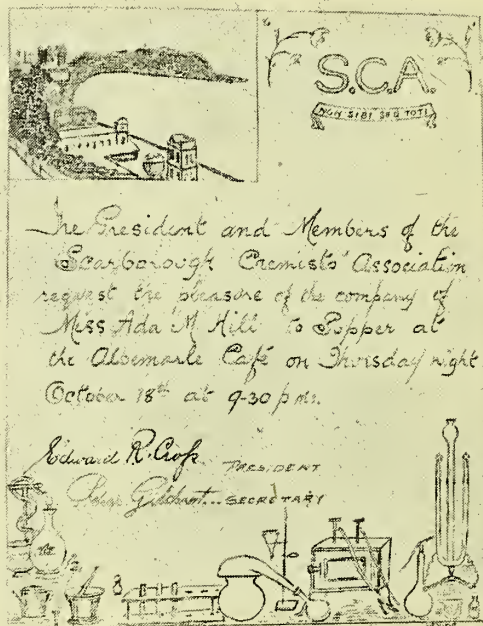 S.C.A.
NON SIBI SED TOTI
The President and Members of the
Scarborough Chemists' Association
request the pleasure of the company of
Miss Ada M Hill to Supper at
the Albemarle Café on Thursday night
October 18th at 9-30 p.m.
Edward R. Cross PRESIDENT
SECRETARY